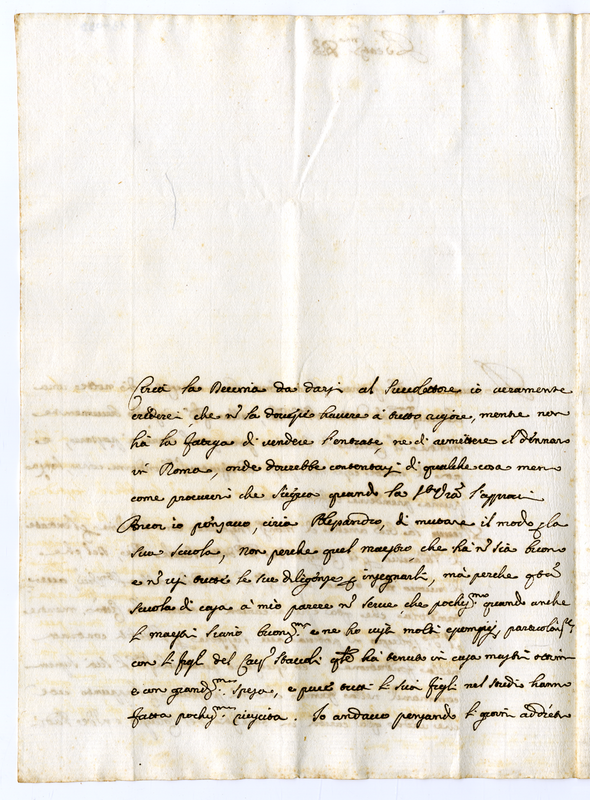 Circa la Decima da darsi al Succollettore io veramente
crederei, che nō la dovesse havere à tutto rigore, mentre non
hà la fatiga di vendere l'entrate, ne di rimettere il dennaro
in Roma, onde dovrebbe contentarsi di qualche cosa meno
come procurerò che segua quando la S.V. l'approvi
Ancor io pensavo, circa Alessandro, di mutare il modo p la
sua scuola, non perche quel maestro, che hà nō sia buono
e nō usi tutte le sue diligenze p insegnarli, mà perche
scuola di casa à mio parere nō serve, che pochiss.mo quando anche
li maestri siano buoniss.mi e ne ho visti molti essempij,
con li figli del Cav.r Staccoli hà tenuto in casa mastri ottimi
e con grandiss.ma spesa, e pure tutti li suoi figli nel studio hanno
fatta pochiss.ma riuscita. Io andavo pensando li giorni addietro